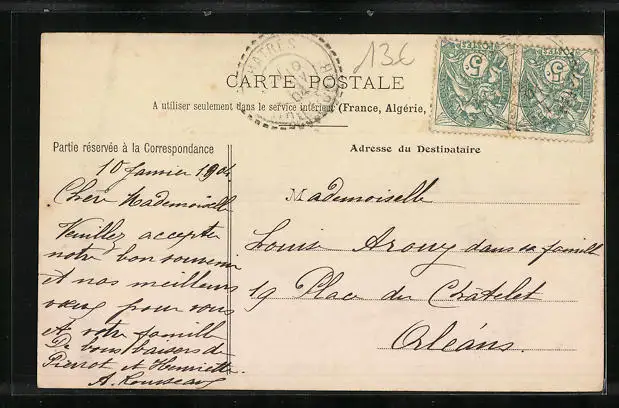 CARTE POSTALE
A utiliser seulement dans le service intérieur (France, Algérie,
13€
Partie réservée à la Correspondance
Adresse du Destinataire
10 Janvier 1904
Chère Mademoiselle
Veuillez accepter
notre bon souvenir
et nos meilleurs
vœux pour vous
et votre famille
De bons baisers de
Pierrot et Henriette
A. Rousseau
Mademoiselle
Louis Arouy dans sa famille
19 Place du Châtelet
Orléans.
5
5